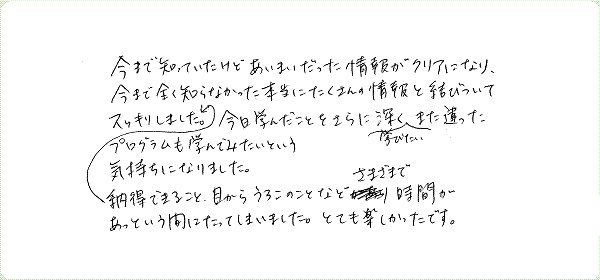 今まで知っていたけどあいまいだった情報がクリアになり、
今まで全く知らなかった本当にたくさんの情報と結びついて
スッキリしました。今日学んだことをさらに深く、また違った
学びたい
プログラムも学んでみたいという
気持ちになりました。
さまざまで
納得できること、目からうろこのことなど 時間が
あっという間にたってしまいました。とても楽しかったです。